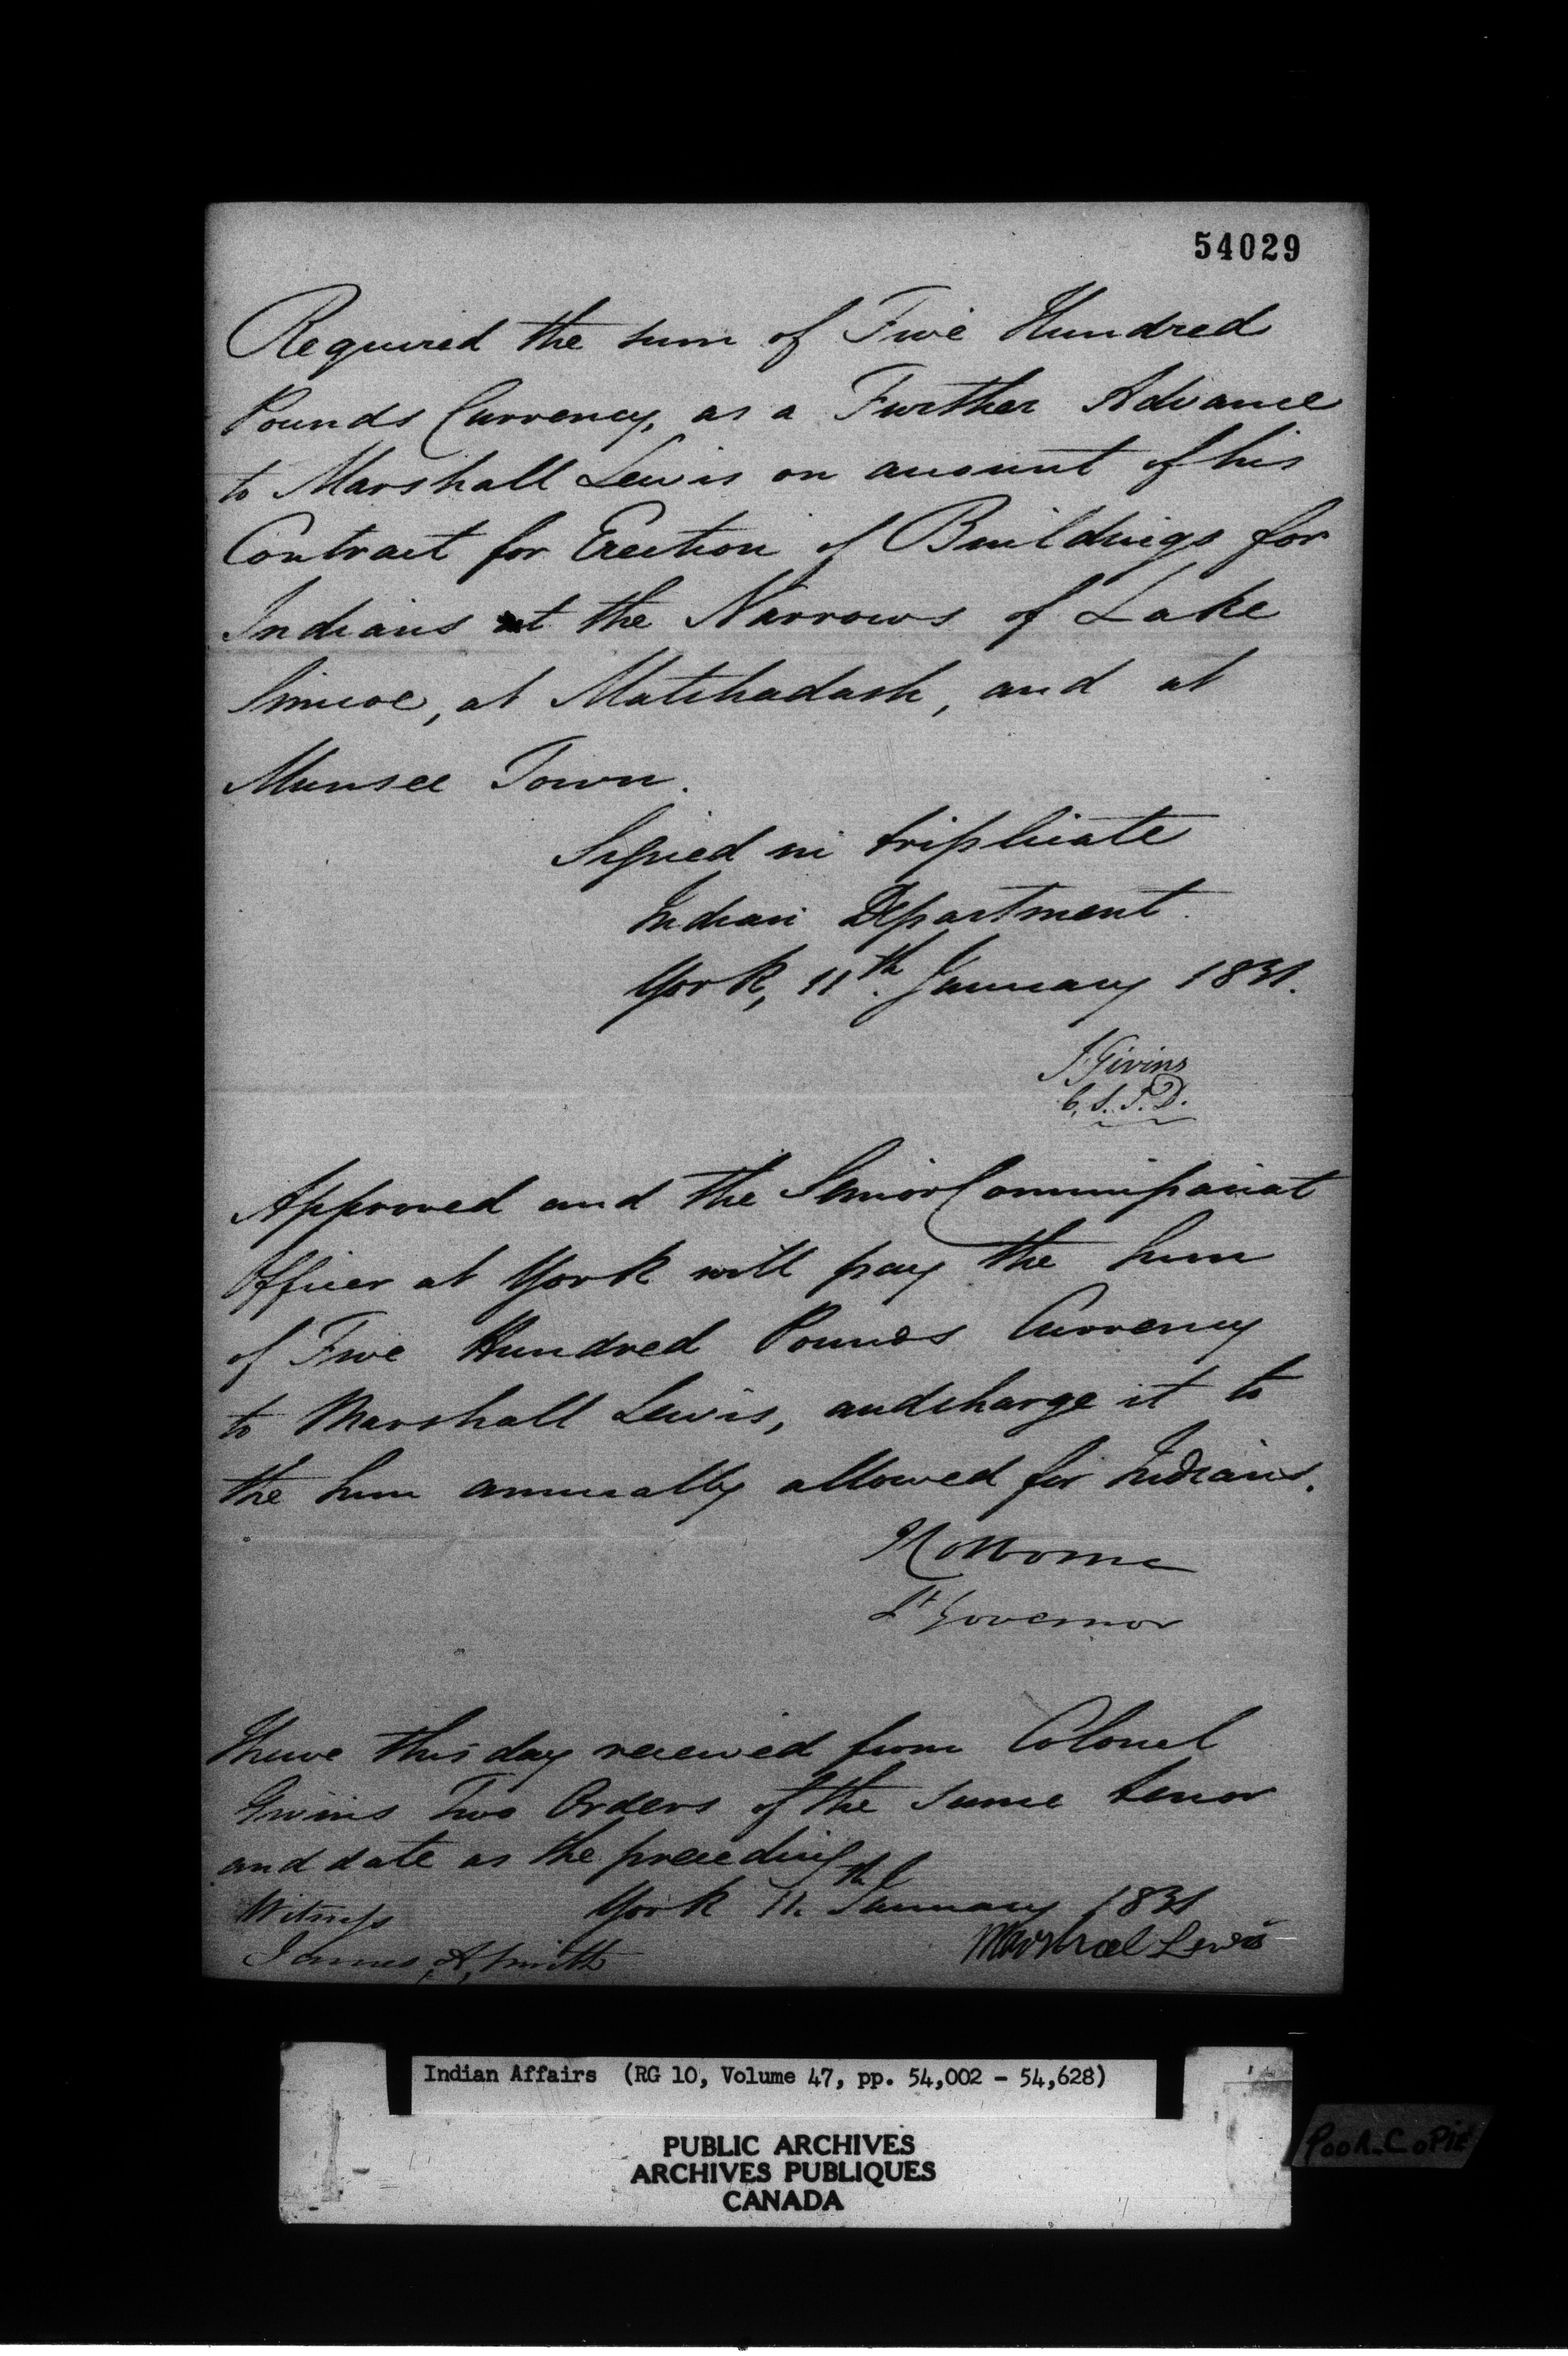 54029
Required the sum of Five Hundred
Pounds Currency, as a Further Advance
to Marshall Lewis on account of his
Contract for Erection of Buildings for
Indians at the Narrows of Lake
Simcoe, at Matchadash, and at
Munsee Town.
Signed in triplicate
Indian Department.
York, 11th January 1831.
J Givins
C. S. I. D.
Approved and the Senior Commissariat
Officer at York will pay the sum
of Five Hundred Pounds Currency
to Marshall Lewis, and charge it to
the sum annually allowed for Indians.
J Colborne
Lt Governor
I have this day received from Colonel
Givins Two Orders of the same tenor
and date as the preceding
York 11th January 1831
Witness
Marshal Lewis
James A. Smith
Indian Affairs (RG 10, Volume 47, pp. 54,002 - 54,628)
PUBLIC ARCHIVES
ARCHIVES PUBLIQUES
CANADA
POOR COPIE